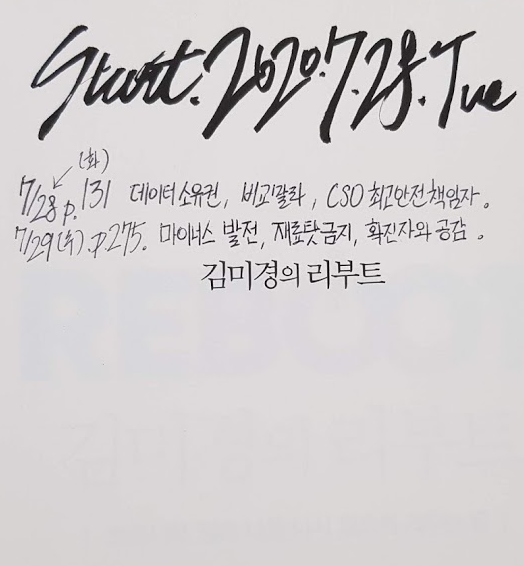 Start. 2020. 7. 28. Tue
(화)
7/28 p.131 데이터 소유권, 비교갈라, CSO 최고안전책임자.
7/29(수). p.275. 마이너스 발전, 재료탓금지, 확진자와 공감.
김미경의 리부트
REBOOT
김미경의 리부트